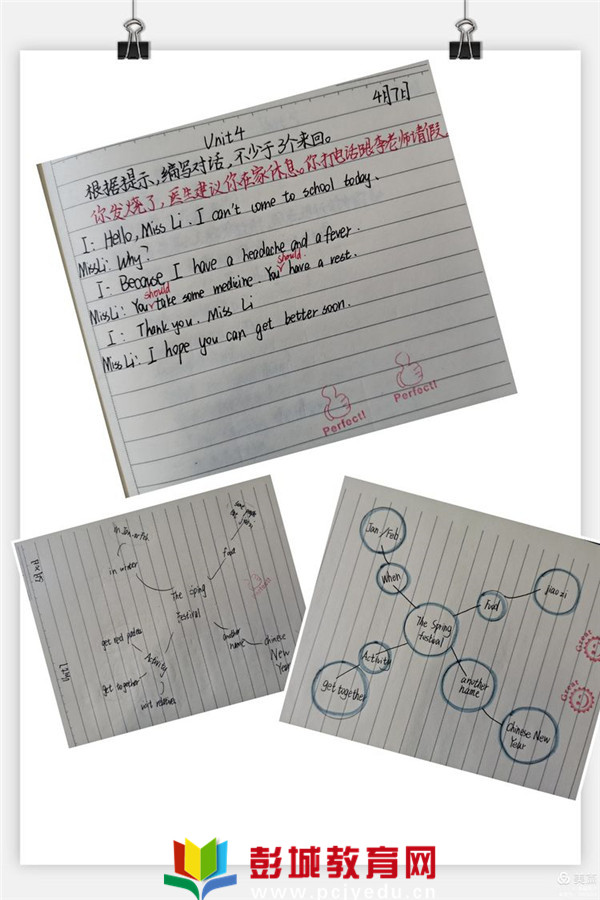 4月7日
Unit 4
根据提示,编写对话,不少于3个来回。
你发烧了,医生建议你在家休息。你打电话跟李老师请假。
I: Hello, Miss Li. I can't come to school today.
Miss Li: Why?
I: Because I have a headache and a fever.
should should
Miss Li: You take some medicine. You have a rest.
I: Thank you. Miss Li
Miss Li: I hope you can get better soon.
Perfect! Perfect!
in winter
food
The Spring
Festival
another
name
Chinese
New
Year
Activity
get together
Jan./Feb
When
Food
jiaozi
The Spring
festival
Activity
get together
another
name
Chinese New
Year
Great
Great
彭城教育网
www.pcjyedu.cn